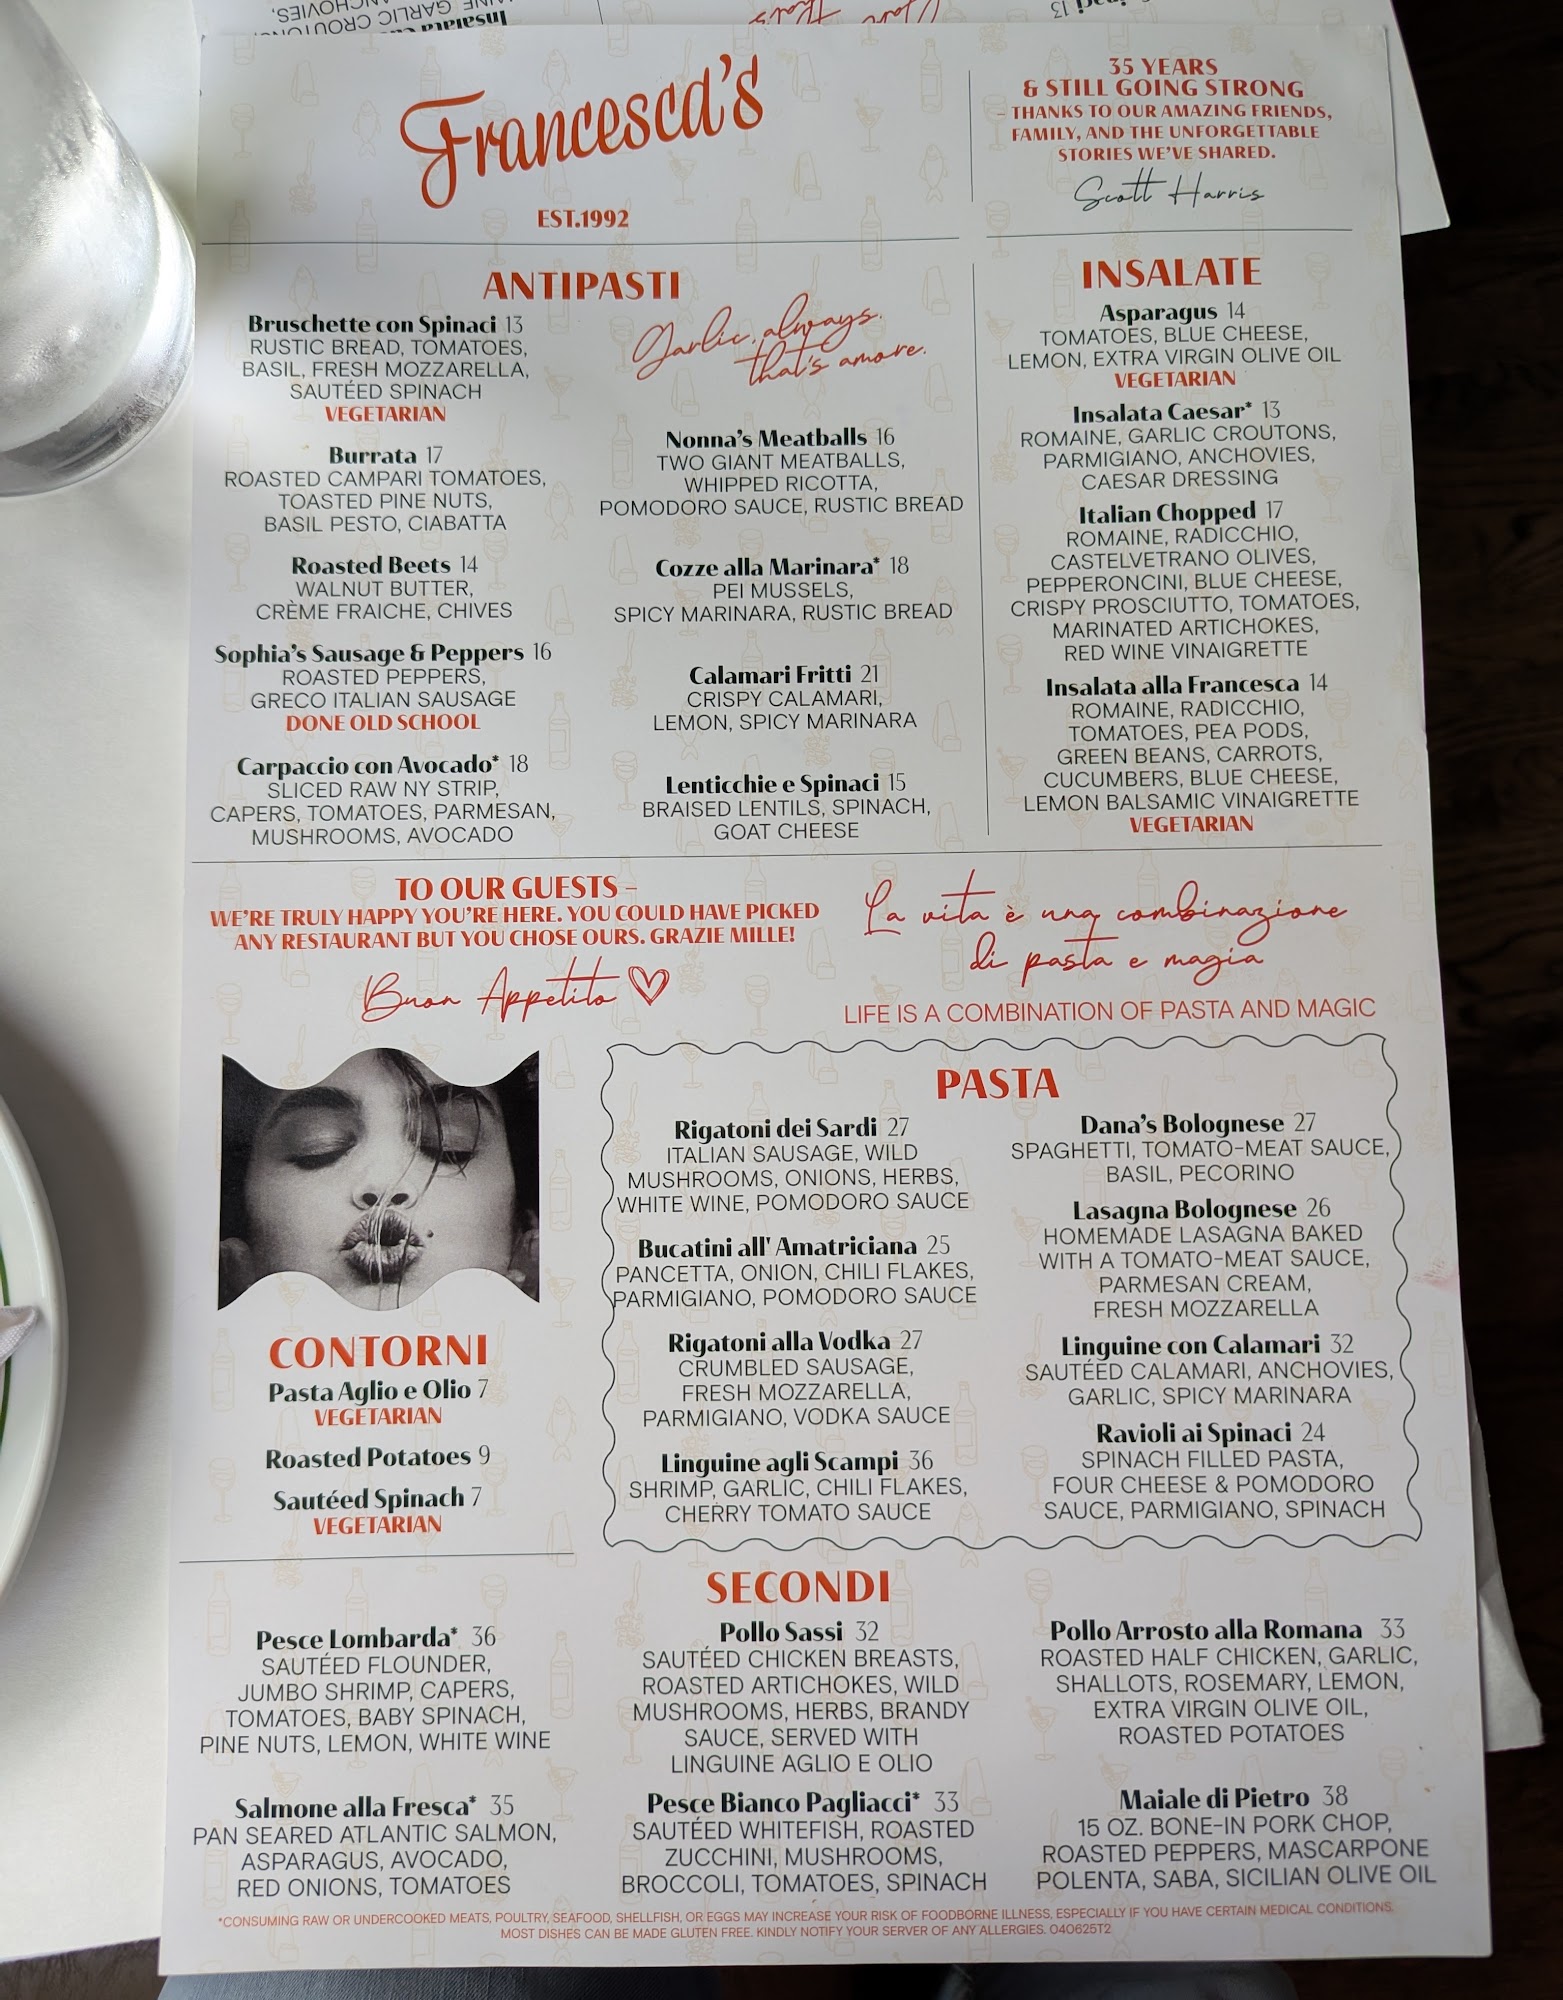 Francesca's
EST.1992
35 YEARS
& STILL GOING STRONG
– THANKS TO OUR AMAZING FRIENDS,
FAMILY, AND THE UNFORGETTABLE
STORIES WE'VE SHARED.
Scott Harris
ANTIPASTI
Bruschette con Spinaci 13
RUSTIC BREAD, TOMATOES,
BASIL, FRESH MOZZARELLA,
SAUTÉED SPINACH
VEGETARIAN
Burrata 17
ROASTED CAMPARI TOMATOES,
TOASTED PINE NUTS,
BASIL PESTO, CIABATTA
Roasted Beets 14
WALNUT BUTTER,
CRÈME FRAICHE, CHIVES
Sophia's Sausage & Peppers 16
ROASTED PEPPERS,
GRECO ITALIAN SAUSAGE
DONE OLD SCHOOL
Carpaccio con Avocado* 18
SLICED RAW NY STRIP,
CAPERS, TOMATOES, PARMESAN,
MUSHROOMS, AVOCADO
Garlic, always.
that's amore.
Nonna's Meatballs 16
TWO GIANT MEATBALLS,
WHIPPED RICOTTA,
POMODORO SAUCE, RUSTIC BREAD
Cozze alla Marinara* 18
PEI MUSSELS,
SPICY MARINARA, RUSTIC BREAD
Calamari Fritti 21
CRISPY CALAMARI,
LEMON, SPICY MARINARA
Lenticchie e Spinaci 15
BRAISED LENTILS, SPINACH,
GOAT CHEESE
INSALATE
Asparagus 14
TOMATOES, BLUE CHEESE,
LEMON, EXTRA VIRGIN OLIVE OIL
VEGETARIAN
Insalata Caesar* 13
ROMAINE, GARLIC CROUTONS,
PARMIGIANO, ANCHOVIES,
CAESAR DRESSING
Italian Chopped 17
ROMAINE, RADICCHIO,
CASTELVETRANO OLIVES,
PEPPERONCINI, BLUE CHEESE,
CRISPY PROSCIUTTO, TOMATOES,
MARINATED ARTICHOKES,
RED WINE VINAIGRETTE
Insalata alla Francesca 14
ROMAINE, RADICCHIO,
TOMATOES, PEA PODS,
GREEN BEANS, CARROTS,
CUCUMBERS, BLUE CHEESE,
LEMON BALSAMIC VINAIGRETTE
VEGETARIAN
TO OUR GUESTS –
WE'RE TRULY HAPPY YOU'RE HERE. YOU COULD HAVE PICKED
ANY RESTAURANT BUT YOU CHOSE OURS. GRAZIE MILLE!
Buon Appetito
La vita è una combinazione
di pasta e magia
LIFE IS A COMBINATION OF PASTA AND MAGIC
CONTORNI
Pasta Aglio e Olio 7
VEGETARIAN
Roasted Potatoes 9
Sautéed Spinach 7
VEGETARIAN
PASTA
Rigatoni dei Sardi 27
ITALIAN SAUSAGE, WILD
MUSHROOMS, ONIONS, HERBS,
WHITE WINE, POMODORO SAUCE
Bucatini all' Amatriciana 25
PANCETTA, ONION, CHILI FLAKES,
PARMIGIANO, POMODORO SAUCE
Rigatoni alla Vodka 27
CRUMBLED SAUSAGE,
FRESH MOZZARELLA,
PARMIGIANO, VODKA SAUCE
Linguine agli Scampi 36
SHRIMP, GARLIC, CHILI FLAKES,
CHERRY TOMATO SAUCE
Dana's Bolognese 27
SPAGHETTI, TOMATO-MEAT SAUCE,
BASIL, PECORINO
Lasagna Bolognese 26
HOMEMADE LASAGNA BAKED
WITH A TOMATO-MEAT SAUCE,
PARMESAN CREAM,
FRESH MOZZARELLA
Linguine con Calamari 32
SAUTÉED CALAMARI, ANCHOVIES,
GARLIC, SPICY MARINARA
Ravioli ai Spinaci 24
SPINACH FILLED PASTA,
FOUR CHEESE & POMODORO
SAUCE, PARMIGIANO, SPINACH
SECONDI
Pesce Lombarda* 36
SAUTÉED FLOUNDER,
JUMBO SHRIMP, CAPERS,
TOMATOES, BABY SPINACH,
PINE NUTS, LEMON, WHITE WINE
Salmone alla Fresca* 35
PAN SEARED ATLANTIC SALMON,
ASPARAGUS, AVOCADO,
RED ONIONS, TOMATOES
Pollo Sassi 32
SAUTÉED CHICKEN BREASTS,
ROASTED ARTICHOKES, WILD
MUSHROOMS, HERBS, BRANDY
SAUCE, SERVED WITH
LINGUINE AGLIO E OLIO
Pesce Bianco Pagliacci* 33
SAUTÉED WHITEFISH, ROASTED
ZUCCHINI, MUSHROOMS,
BROCCOLI, TOMATOES, SPINACH
Pollo Arrosto alla Romana 33
ROASTED HALF CHICKEN, GARLIC,
SHALLOTS, ROSEMARY, LEMON,
EXTRA VIRGIN OLIVE OIL,
ROASTED POTATOES
Maiale di Pietro 38
15 OZ. BONE-IN PORK CHOP,
ROASTED PEPPERS, MASCARPONE
POLENTA, SABA, SICILIAN OLIVE OIL
*CONSUMING RAW OR UNDERCOOKED MEATS, POULTRY, SEAFOOD, SHELLFISH, OR EGGS MAY INCREASE YOUR RISK OF FOODBORNE ILLNESS, ESPECIALLY IF YOU HAVE CERTAIN MEDICAL CONDITIONS.
MOST DISHES CAN BE MADE GLUTEN FREE. KINDLY NOTIFY YOUR SERVER OF ANY ALLERGIES. 040625T2